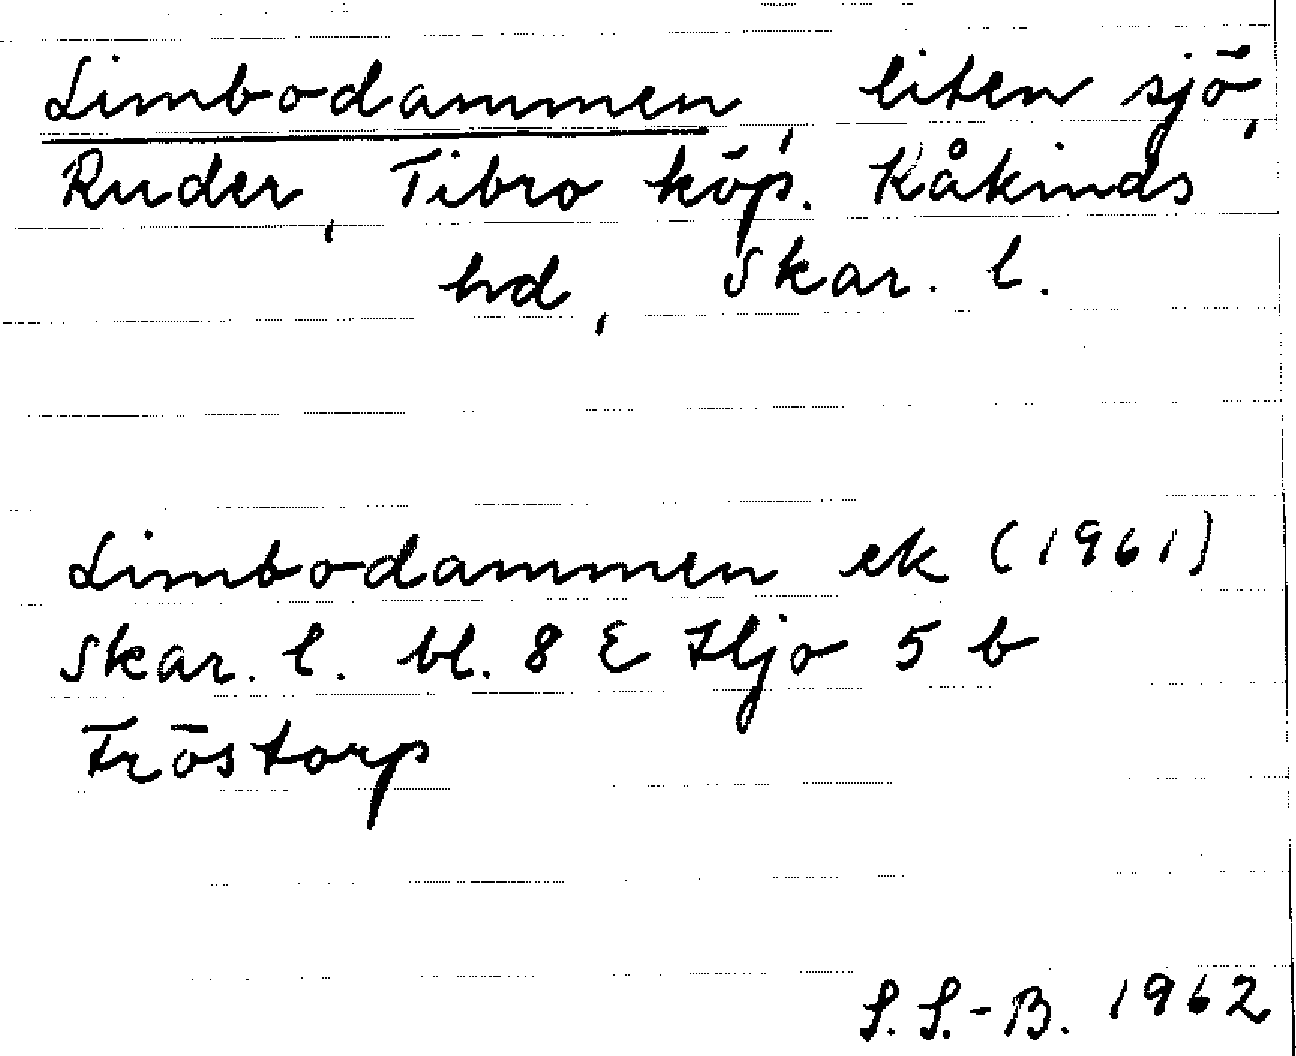 Limbodammen, liten sjö,
Ruder, Tibro köp. Kåkinds
hd, Skar. l.
Limbodammen ek (1961)
Skar. l. bl. 8 E Hjo 5 b
Fröstorp
S. S.-B. 1962